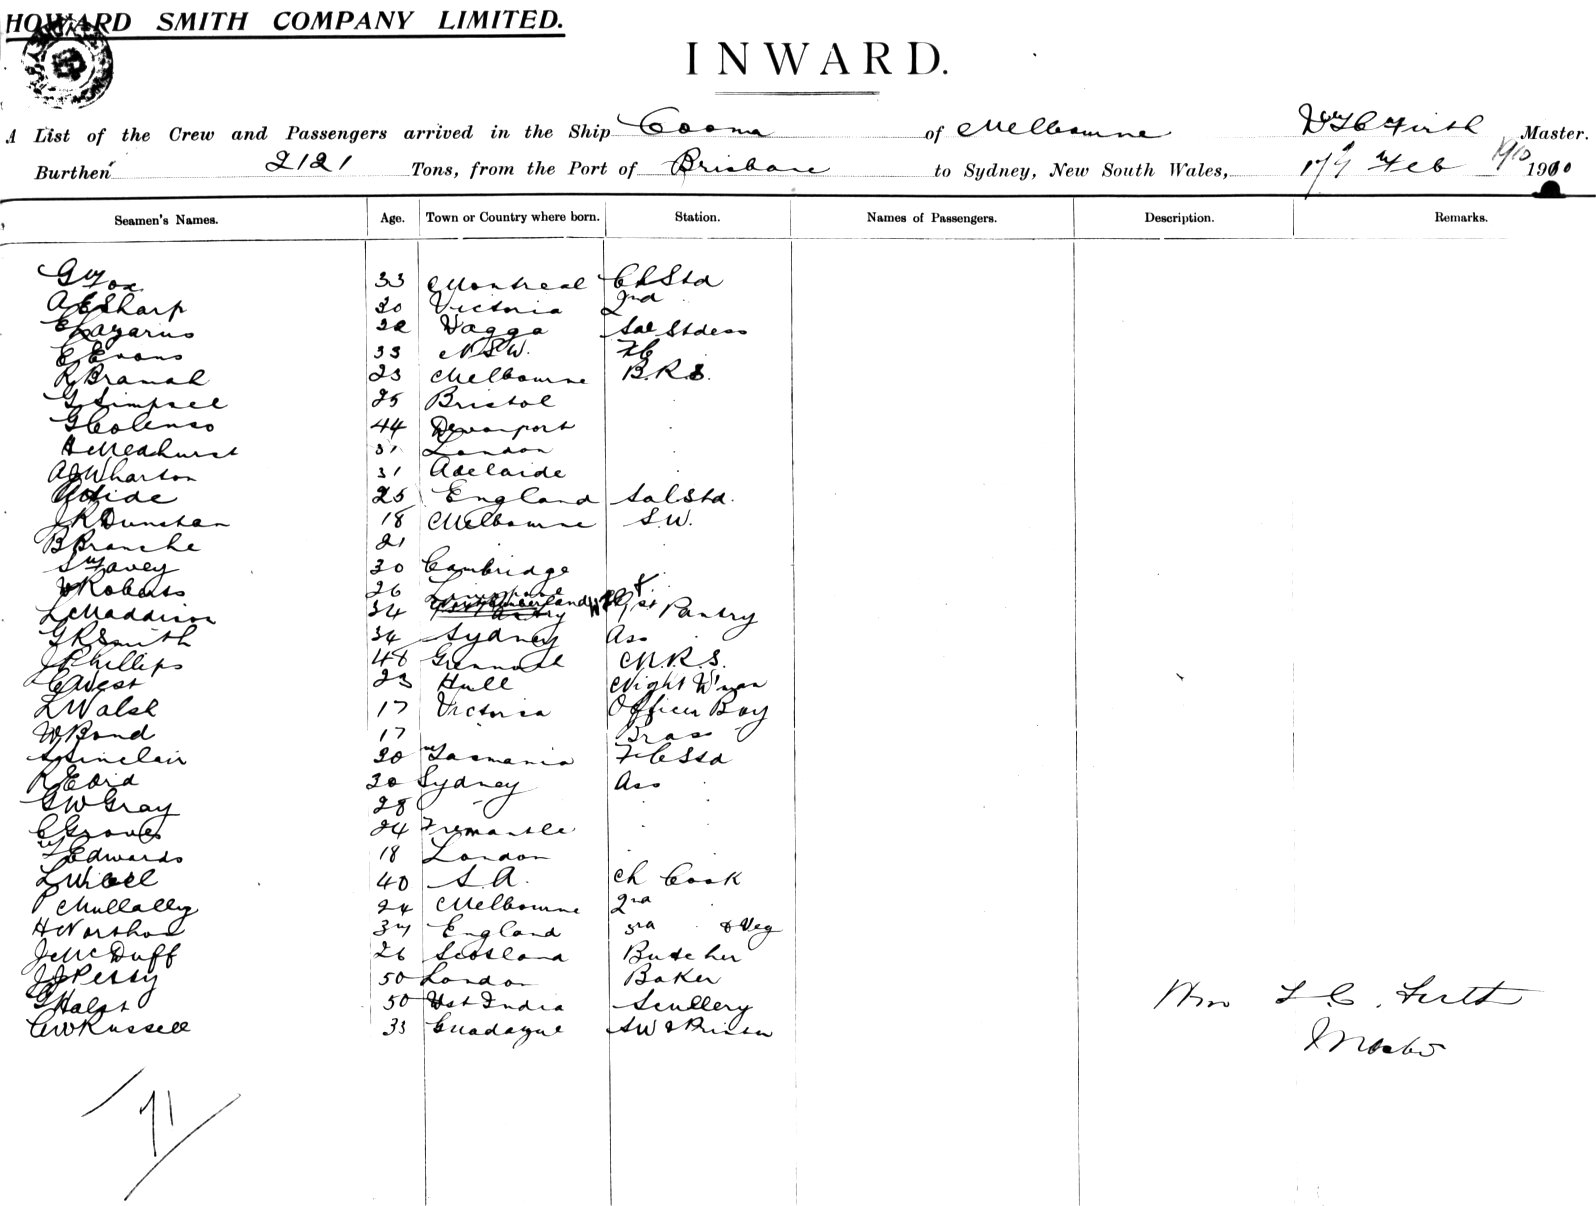 HOWARD SMITH COMPANY LIMITED.
INWARD.
A List of the Crew and Passengers arrived in the Ship Cooma of Melbourne Wm L C Firth Master.
Burthen 2121 Tons, from the Port of Brisbane to Sydney, New South Wales, 17th Feb 1910 1910
Seamen's Names. Age. Town or Country where born. Station. Names of Passengers. Description. Remarks.
G Fox 33 Montreal Ch Std
A E Sharp 20 Victoria 2nd
E Lazarus 22 Wagga Sal Stdess
E Evans 33 N.S.W. F C
R Bramah 23 Melbourne B.R.S.
G Simpsel 25 Bristol
G Colenso 44 Devonport
H Medhurst 31 London
A J Wharton 31 Adelaide
A Side 25 England Sal Std.
J R Dunstan 18 Melbourne S.W.
B Branche 21
S Favey 30 Cambridge
V Roberts 26
L Maddison 34 1st Pantry
G R Smith 34 Sydney Ass
J Phillips 48 M.R.S.
C West 23 Hull Night W'man
L Walsh 17 Victoria Officer Boy
W Bond 17 Brass
S Sinclair 20 Tasmania F C Std
R Eord 20 Sydney Ass
G W Gray 28
C Groves 24 Fremantle
T Edwards 18 London
L Wibell 40 S.A. Ch Cook
P Mullally 24 Melbourne 2nd
H Northod 37 England 3rd & Veg
J McDuff 26 Scotland Butcher
J J Perry 50 London Baker
G Halst 50 Wst India Scullery
C W Russell 33 SW &
Wm L C. Firth
Master
71